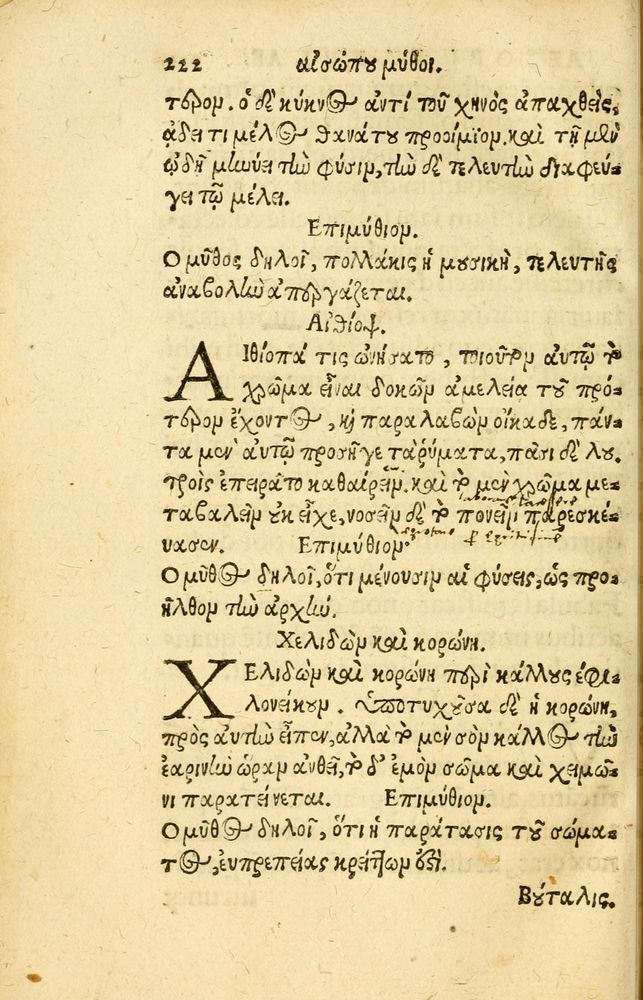 222 αἰσώπου μῦθοι.
τερον. ὁ δὲ κύκνος ἀντὶ τοῦ χηνὸς ἀπαχθεὶς,
ᾄδει τι μέλος θανάτου προοίμιον. καὶ τῇ μὲν
ᾠδῇ μηνύει τὴν φύσιν, τὴν δὲ τελευτὴν διαφεύ-
γει τῷ μέλει.
Επιμύθιον.
Ο μῦθος δηλοῖ, πολλάκις ἡ μουσικὴ, τελευτῆς
ἀναβολὴν ἀπεργάζεται.
Αἰθίοψ.
ΑΙθίοπά τις ὠνήσατο, τοιοῦτον αὐτῷ τὸ
χρῶμα εἶναι δοκῶν ἀμελείᾳ τοῦ πρό-
τερον ἔχοντος, καὶ παραλαβὼν οἴκαδε, πάν-
τα μὲν αὐτῷ προσῆγε τὰ ῥύματα, πᾶσι δὲ λου-
τροῖς ἐπειρᾶτο καθαίρειν. καὶ τὸ μὲν χρῶμα με-
ταβαλεῖν οὐκ εἶχε, νοσεῖν δὲ τὸ πονεῖν παρεσκέ-
υασεν. Επιμύθιον.
Ο μῦθος δηλοῖ, ὅτι μένουσιν αἱ φύσεις, ὡς προ-
ῆλθον τὴν ἀρχήν.
Χελιδὼν καὶ κορώνη.
ΧΕλιδὼν καὶ κορώνη περὶ κάλλους ἐφι-
λονείκουν. ὑποτυχοῦσα δὲ ἡ κορώνη,
πρὸς αὐτὴν εἶπεν, ἀλλὰ τὸ μὲν σὸν κάλλος τὴν
ἐαρινὴν ὥραν ἀνθεῖ, τὸ δ' ἐμὸν σῶμα καὶ χειμῶ-
νι παρατείνεται. Επιμύθιον.
Ο μῦθος δηλοῖ, ὅτι ἡ παράτασις τοῦ σώμα-
τος, εὐπρεπείας κρείττων ἐστί.
Βούταλις.